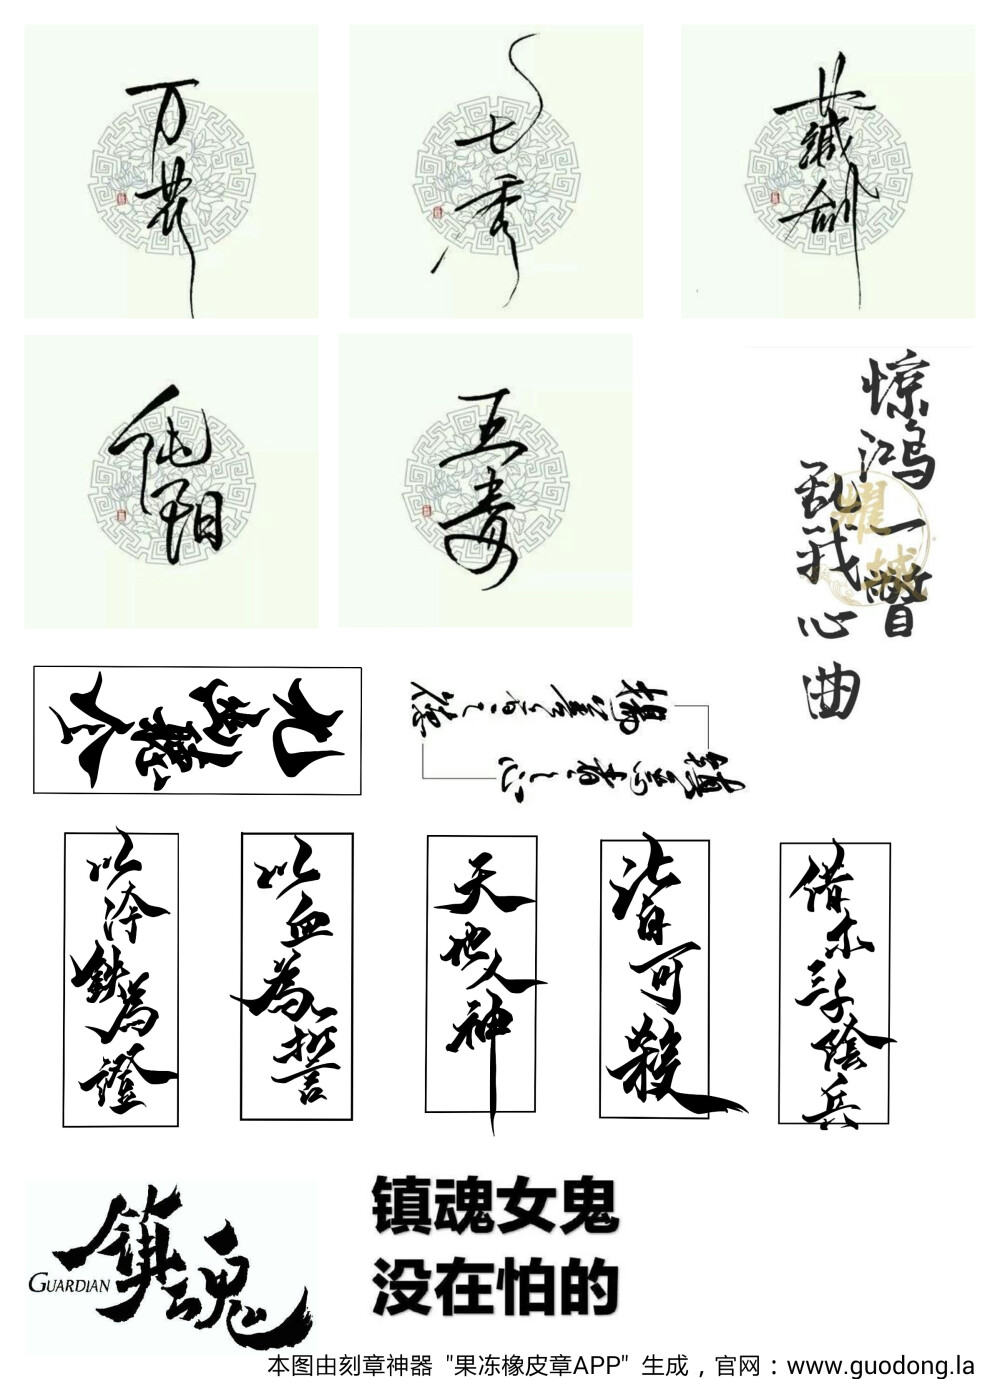 万花
七秀
藏剑
纯阳
五毒
惊鸿一瞥
乱我心曲
耀
以冷鐵為證
以血為誓
天地人神
皆可殺
借末子陰兵
鎮魂
GUARDIAN
镇魂女鬼
没在怕的
本图由刻章神器 "果冻橡皮章APP" 生成，官网：www.guodong.la